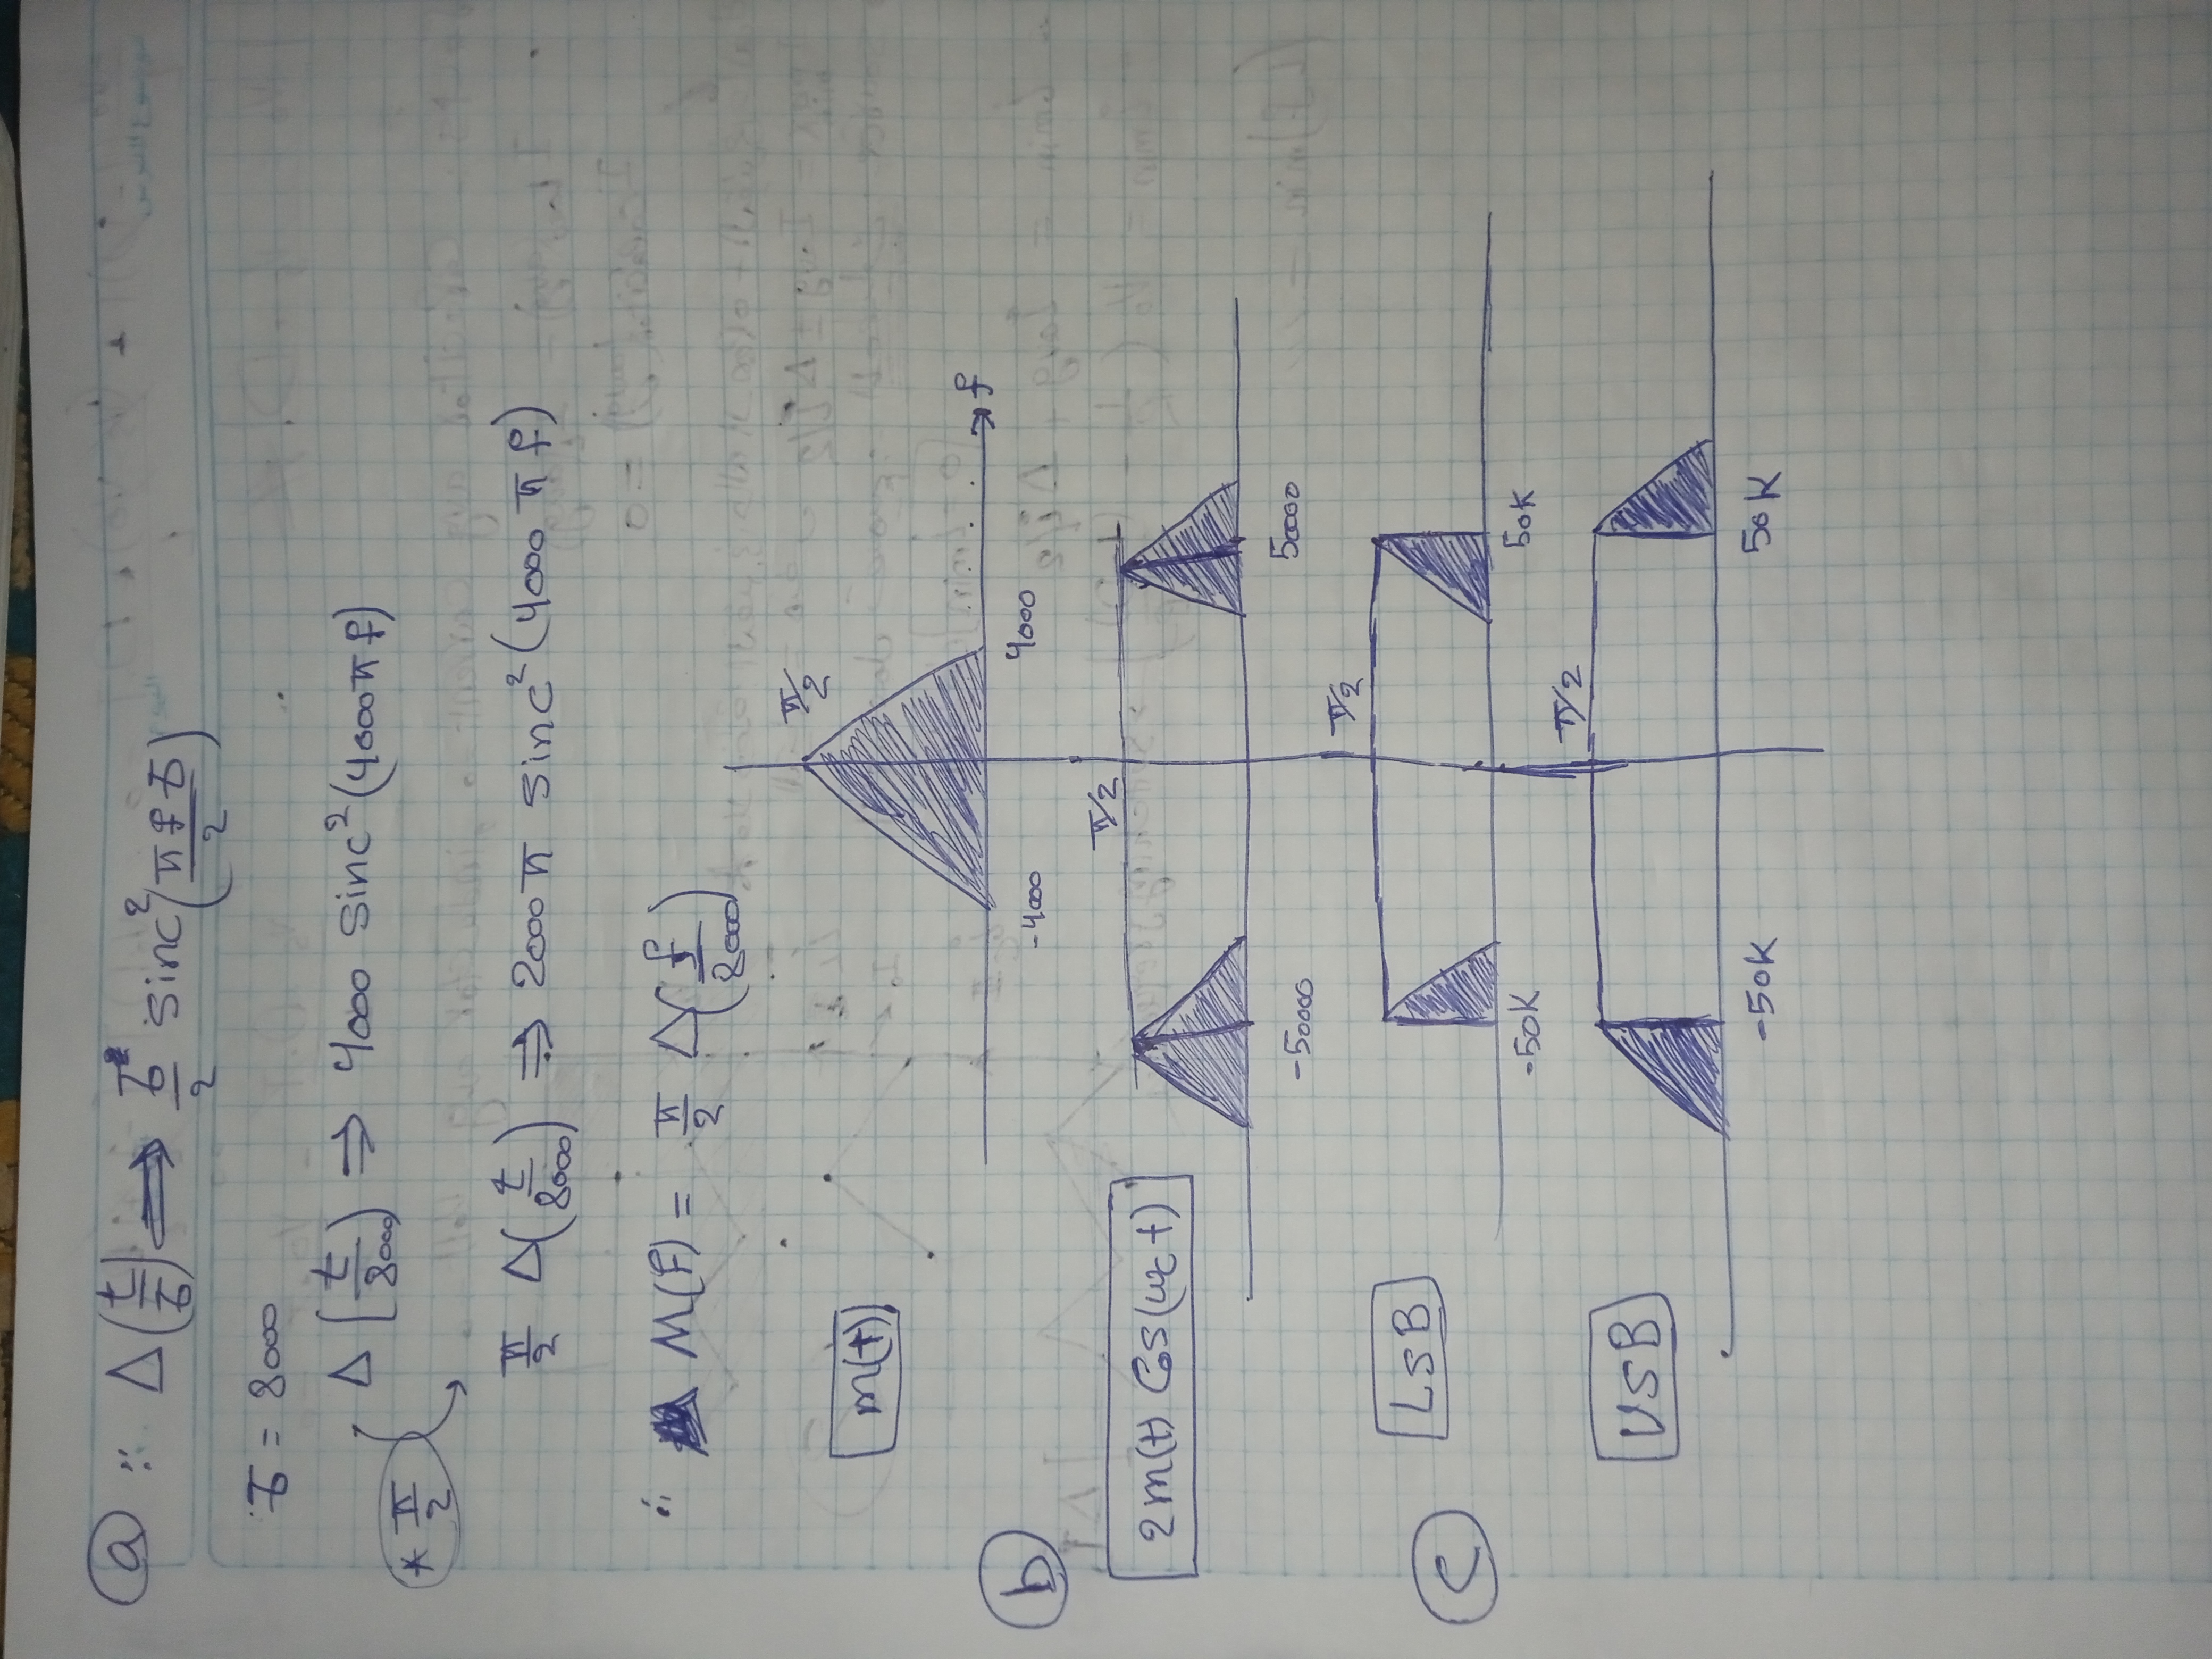 a ∵ Δ(t/τ) ⟹ τ/2 sinc²(πfτ/2)
τ = 8000
Δ(t/8000) ⇒ 4000 sinc²(4000πf)
* π/2
π/2 Δ(t/8000) ⇒ 2000π sinc²(4000πf)
∴ M(f) = π/2 Δ(f/8000)
π/2
m(t)
f
-4000 4000
b
π/2
2m(t) Cos(ωc t)
-50000 50000
π/2
LSB
c
-50K 50K
π/2
USB
-50K 50K